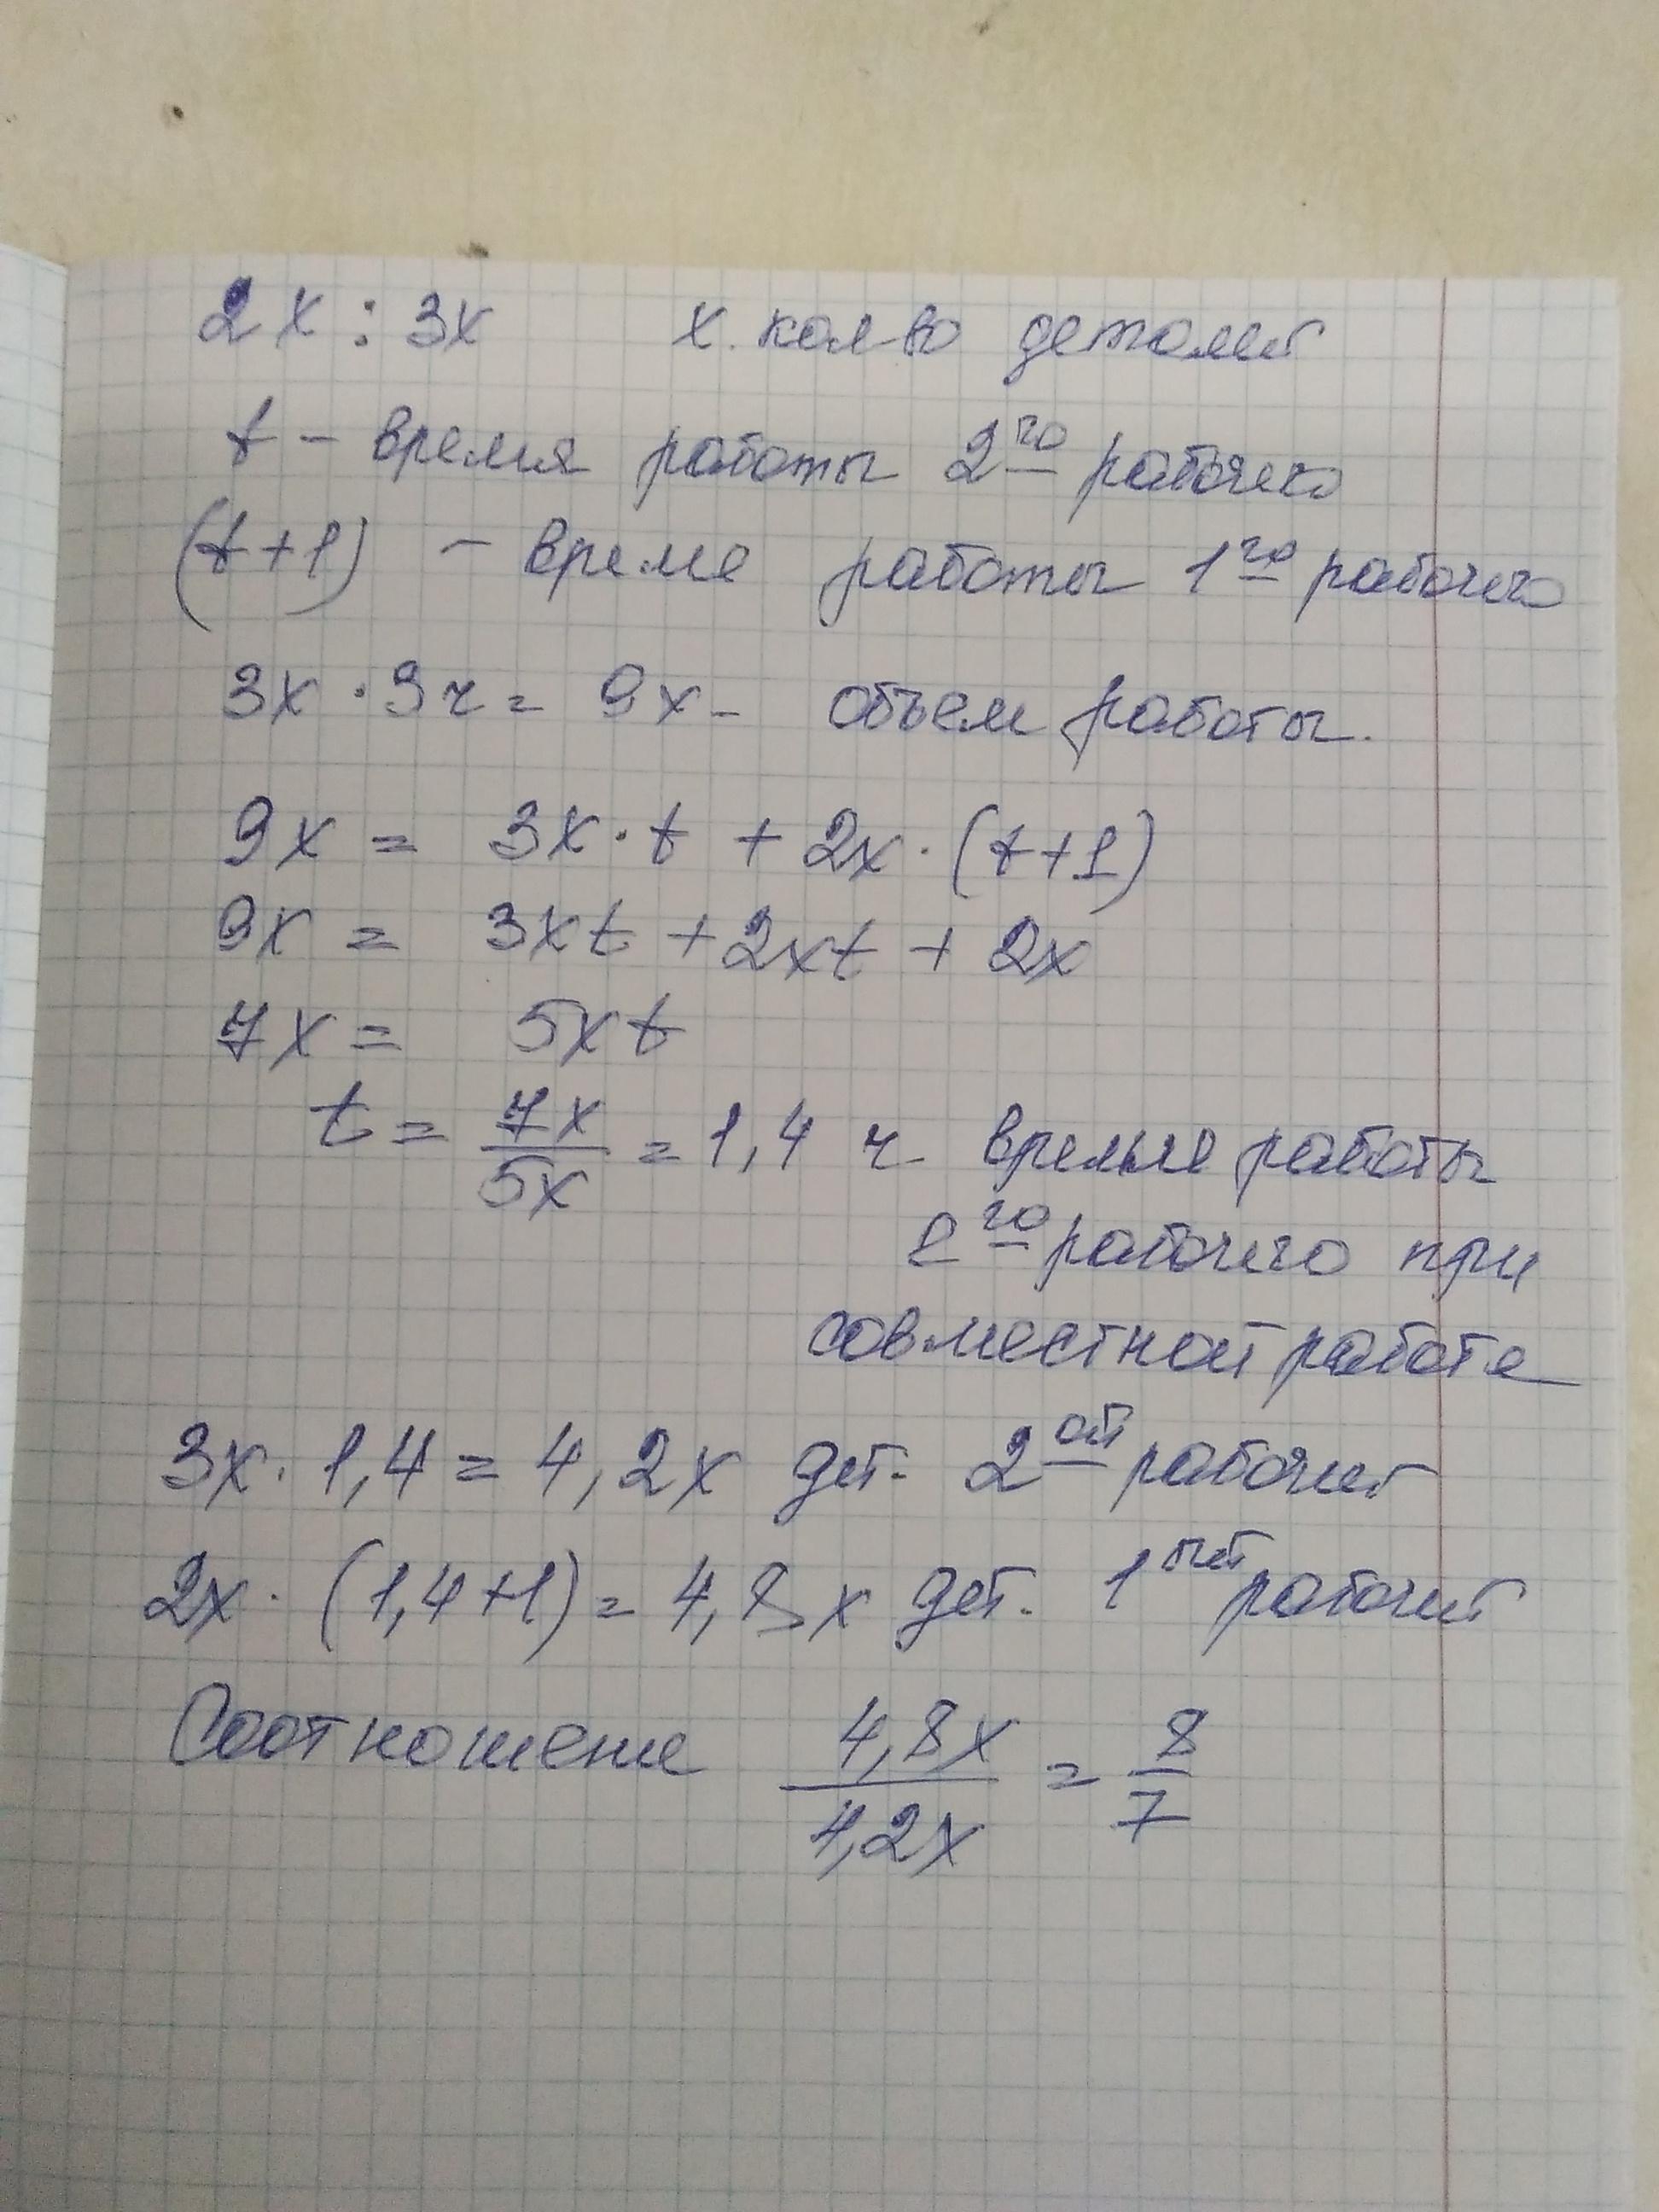 2x : 3x x. кол-во деталей
t – время работы 2го рабочего
(t+1) – время работы 1го рабочего
3x · 3ч = 9x – объем работы.
9x = 3x · t + 2x · (t+1)
9x = 3xt + 2xt + 2x
7x = 5xt
t = 7x/5x = 1,4 ч время работы
2го рабочего при
совместной работе
3x · 1,4 = 4,2x дет. 2ой рабочий
2x · (1,4+1) = 4,8x дет. 1ый рабочий
Соотношение 4,8x/4,2x = 8/7